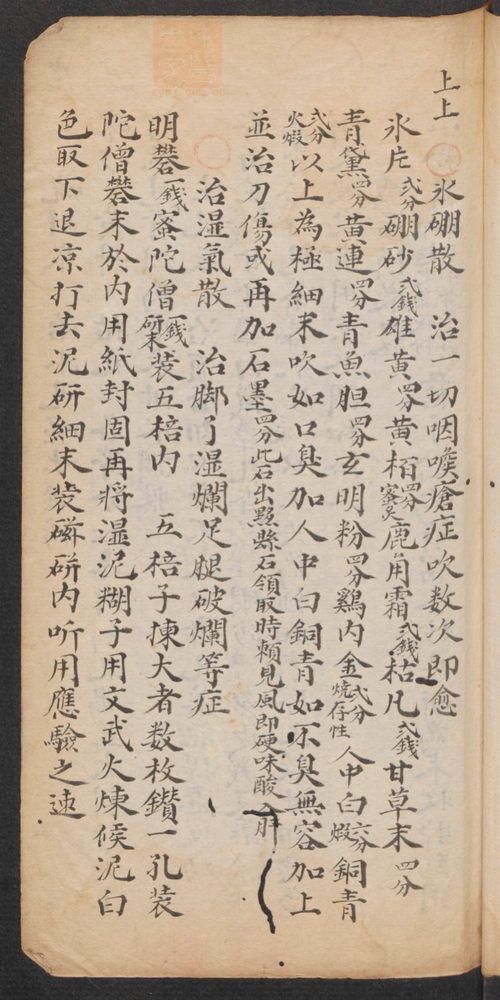 上上
氷硼散　治一切咽喉瘡症吹数次即愈
氷片弍分硼砂弍錢雄黃四分黃栢四分蜜炙鹿角霜弍錢枯凡弍錢甘草末四分
青黛四分黃連四分青魚胆四分玄明粉四分鷄内金弍分燒存性人中白六分煅銅青
弍分火煅以上為極細末吹如口臭加人中白銅青如不臭無容加上
並治刀傷或再加石墨四分此石出黟縣石領取時頼見風即硬味酸入肝
治湿氣散　治脚丫湿爛足腿破爛等症
明礬一錢蜜陀僧一錢研末装五棓内　五棓子揀大者数枚鑽一孔装
陀僧礬末於内用紙封固再將湿泥糊子用文武火煉候泥白
色取下退凉打去泥研細末装磁缾内听用應驗之速